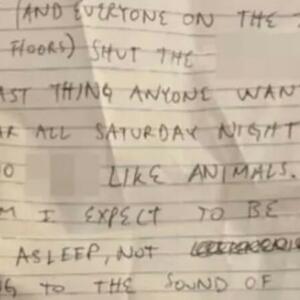 (AND EVERYONE ON THE
FLOORS) SHUT THE
THING ANYONE
ALL SATURDAY NIGHT
LIKE ANIMALS.
I EXPECT TO BE
ASLEEP, NOT
TO THE SOUND OF